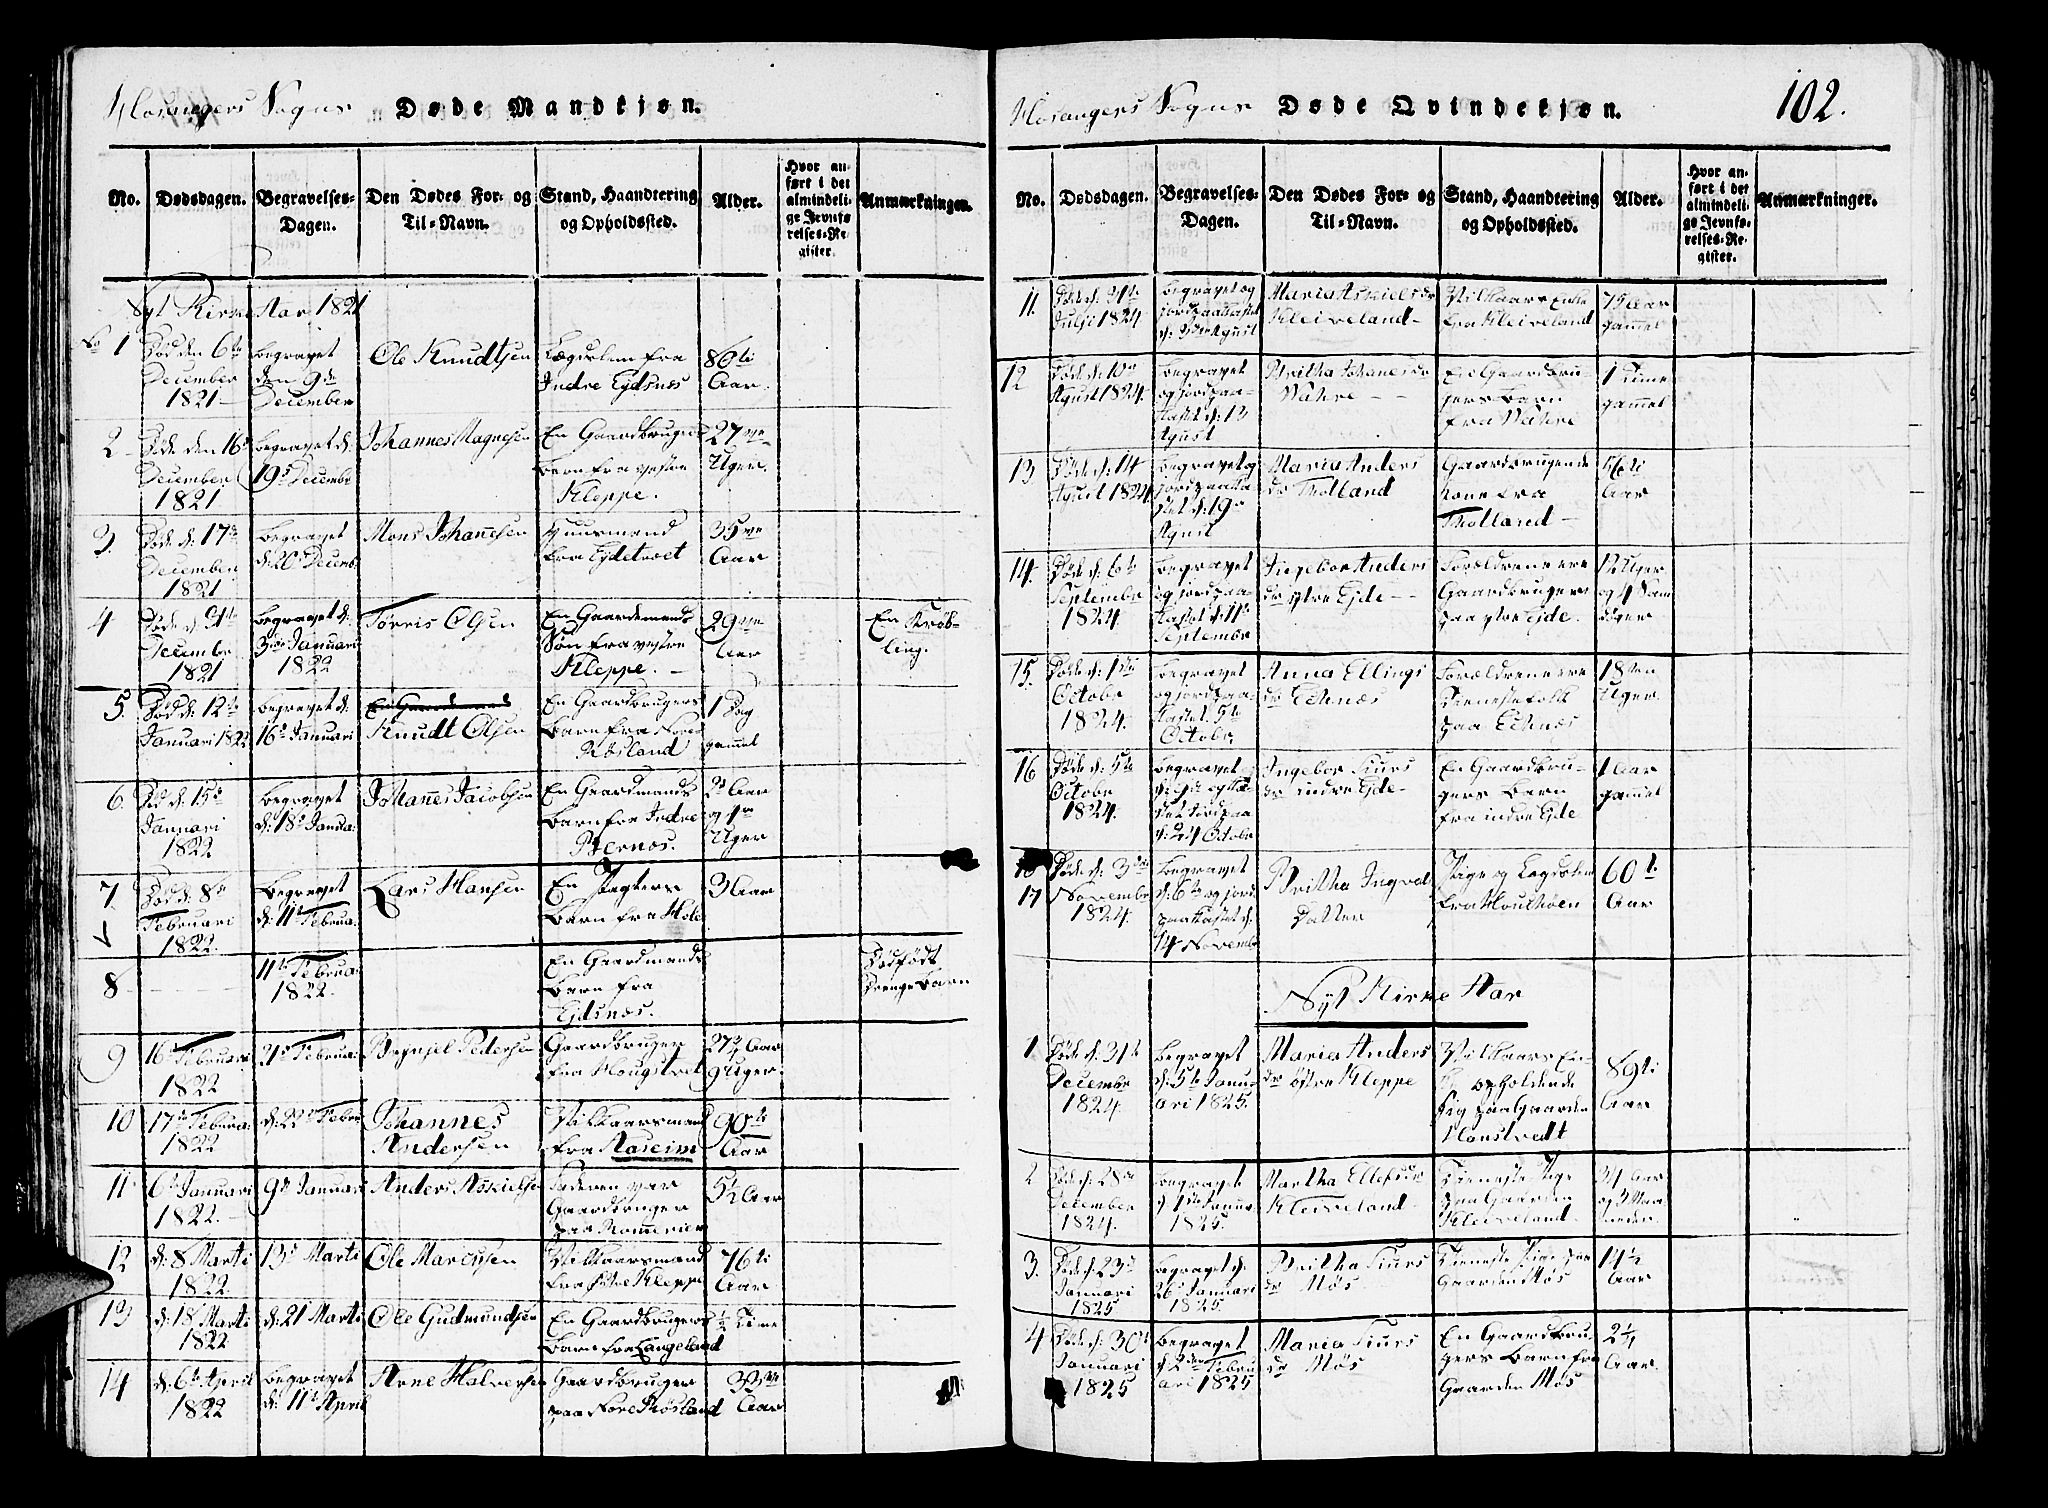 Hosangers Sogns Døde Mandkjøn.
No. Dødsdagen. Begravelses-Dagen. Den Dødes For- og Til-Navn. Stand, Haandtering og Opholdssted. Alder. Hvor anført i det almindelige Jevnførelses-Register. Anmærkninger.
Nyt Kirke Aar 1821
1 Død den 6te December 1821 begravet den 9de December Ole Knudtsen Lægdslem fra Indre Ejdsnes 80ti Aar.
2 Døde den 16d December 1821 begravet d: 19d Decembr Johannes Magnesen En Gaardbrugers barn fra vestre Kleppe. 27ve Uger.
3. Døde d: 17de December 1821 begravet d: 20 Decemb. Mons Johannesen Huusmand fra Ejdetræet 35ve Aar
4 Døde d: 31te Decembr 1821 begravet d: 3die Januari 1822 Torris Olsen En Gaardmands Søn fra vestre Kleppe. 29ve Aar En Krøbling.
5. Død d: 12te Januari 1822 begravet d: 16d Januari Knudt Olsen En Gaardbrugers barn fra Nore Røsland 1 Dag gammel
6. Død d: 15d Januari 1822 begravet d: 18d Janua: Johannes Jacobsen En Gaardmands barn fra Indre Bernæs. 2 Aar og 1n Uger
7. Død d: 8d Februari 1822. Begravet d: 11te Februa: Lars Hansen En Jægters barn fra Hole 3 Aar
8 11te Februa: 1822. En Gaardmands barn fra Ejdsnæs. Dødfødt Drengebarn
9 16d Februari 1822 21d Februa: Brynjel Pedersen Gaardbruger fra Hougstvet 27 Aar 9 Uger.
10 17de Februa: 1822 d: 22d Febru Johannes Andersen Vilkaarsmand fra Aaseim 90ti Aar
11 6d Januari 1822. 9d Januari Anders Askielsen Faderen var Gaardbruger paa Rommerien 5½ Aar
12 d: 8 Marti 1822. 13d Marti Ole Marensen Vilkaarsmand fra østre Kleppe 76ti Aar
13 d: 18 Marti 1822 d: 21 Marti Ole Gudmundsen En Gaardbrugers barn fra Langeland ½ Time
14 d: 6te April 1822 begravet d: 11te April Arne Halversen Gaardbruger paa Nore Røsland Aar
Hosangers Sogns Døde Qvindekjøn. 102.
No. Dødsdagen. Begravelses-Dagen. Den Dødes For- og Til-Navn. Stand, Haandtering og Opholdssted. Alder. Hvor anført i det almindelige Jevnførelses-Register. Anmærkninger.
11. Døde d: 31te Julji 1824 begravet og jordpaakastet d: Agust Maria Askielsdr Kleiveland Vilkaars Enke fra Kleiveland 75 Aar gammel
12 Døde d: 10de Agust 1824. begravet og jordpaakastet d: 13 Agust Britha Johanesdr Wahre En Gaardbrugers barn fra Wahre 1 Time gammel
13 Døde d: 14 Agust 1824 begravet og jordpaakastet d: 19de Agust Maria Anders dr Tholland Gaardbrugende kone fra Tholland Aar
14. Døde d: 6te Septembr 1824. begravet og jordpaakastet d: 11te Septembr Ingebor Anders dr ytre Ejde Forældrene ere Gaardbrugere paa ytre Ejde. 12 Uger og 4 Samdøger
15. Døde d: 1ste Octobr 1824. begravet og jordpaakastet 5te Octobr Anna Ellings dr Echnæs Forældrene ere Tienestefolk paa Echnæs 18ten Uger
16 Døde d: 5te Octobr 1824. begravet d: 24 Octobr Ingebor Siurs dr indre Ejde En Gaardbrugers Barn fra indre Ejde 1 Aar gammel
17 Døde d: 3die Novembr 1824. begravet d: 6te og jordpaakastet d: 14 Novembr Britha Ingvels Datter Pige og Lægdslem fra Mouthoen 60ti Aar
Nyt Kirke Aar
1 Døde d: 31te Decembr 1824. begravet d: 5te Januari 1825. Maria Anders dr østre Kleppe Vilkaars Enke opholdende sig paa Gaarden Honstvedt 89ti Aar
2 Døde d: 28de December 1824. begravet d: 1ste Januar 1825. Martha Ellefsdr Kleiveland Tieneste Pige paa Gaarden Kleiveland 34 Aar og 3 Maaneder.
3. Døde d: 23de Januari 1825 begravet d: 26d Januari 1825. Britha Siurs dr Møs Tieneste Pige paa Gaarden Møs 14½ Aar
4 Døde d: 30te Januari 1825 begravet d: 2den Februari 1825 Maria Siurs dr Møs En Gaardbrugers barn fra Gaarden Møs 2¼ Aar